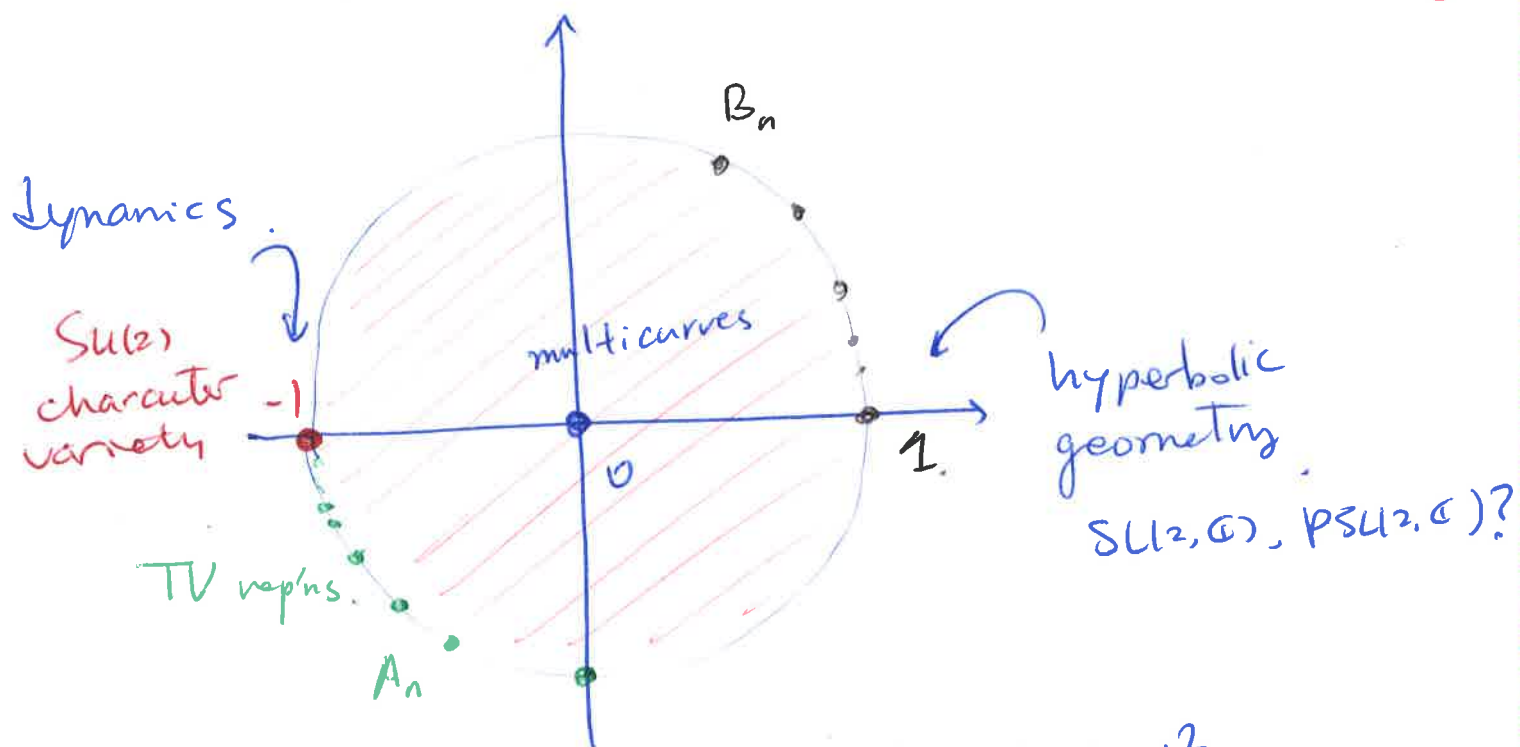 Bn
Dynamics.
SU(2)
character
variety
-1
multicurves
0
1.
hyperbolic
geometry.
SL(2,ℂ), PSL(2,ℂ)?
TV rep'ns.
An
?